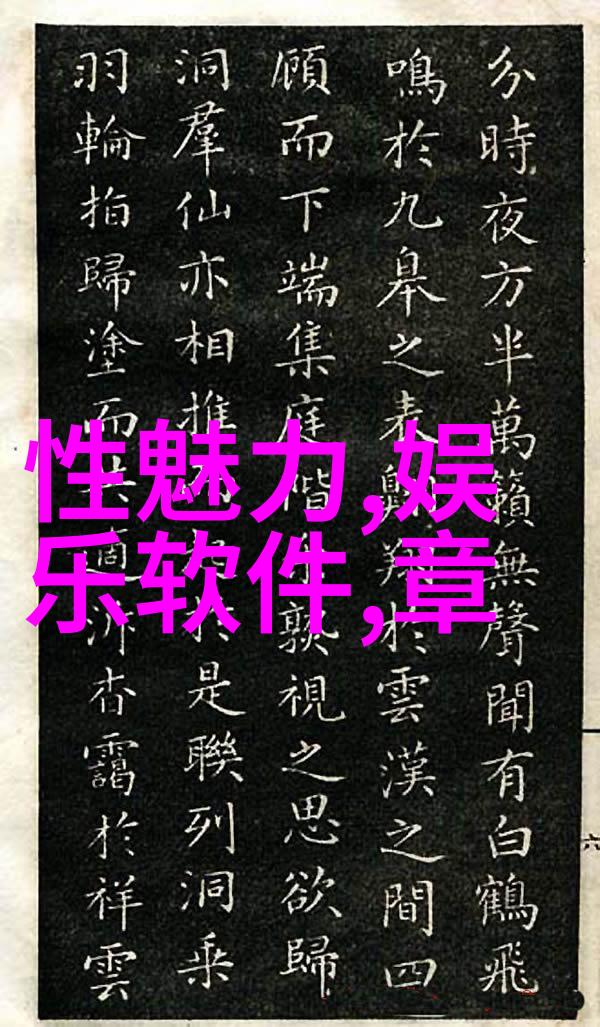 分時夜方半萬籟無聲聞有白鶴飛
鳴於九皋之表翔於雲漢之間四
顧而下端集庭孰視之思欲歸
洞羣仙亦相推於是聯列洞乘
羽輪拍歸塗而共適泝杳靄於祥雲
性魅力,娱
乐软件,章
六